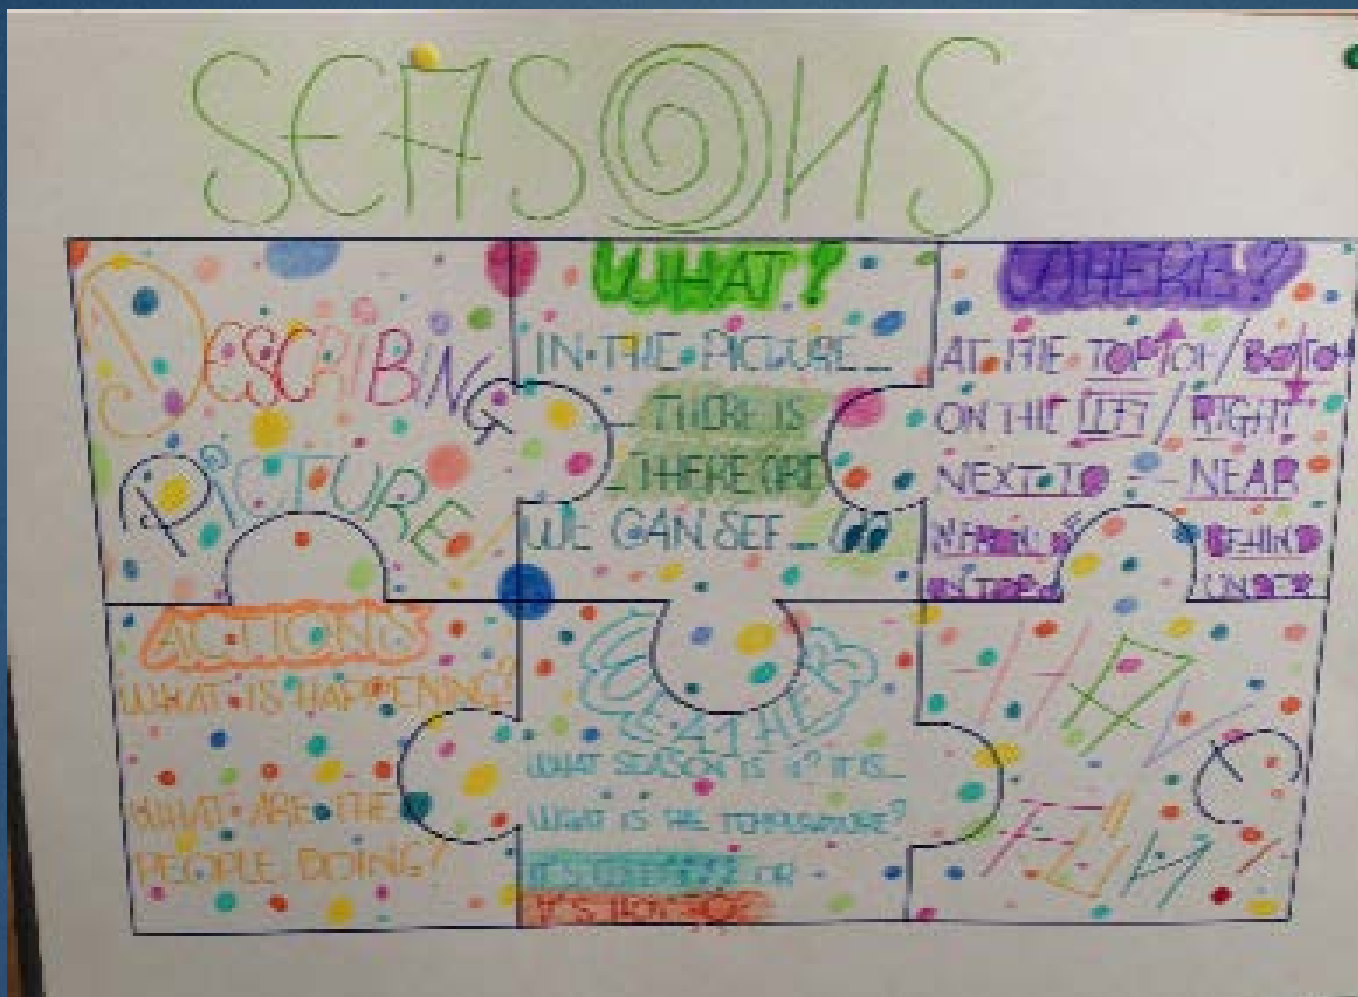 SEASONS
DESCRIBING
PICTURE!
WHAT?
IN THE PICTURE_
_ THERE IS
_ THERE ARE
WE CAN SEE_
WHERE?
AT THE TOP OF / BOTTOM
ON THE LEFT / RIGHT
NEXT TO - NEAR
BEHIND
UNDER
ACTIONS
WHAT IS HAPPENING?
WHAT ARE THE
PEOPLE DOING?
WEATHER
WHAT SEASON IS IT? IT IS_
WHAT IS THE TEMPERATURE?
OR
HAVE
FUN!